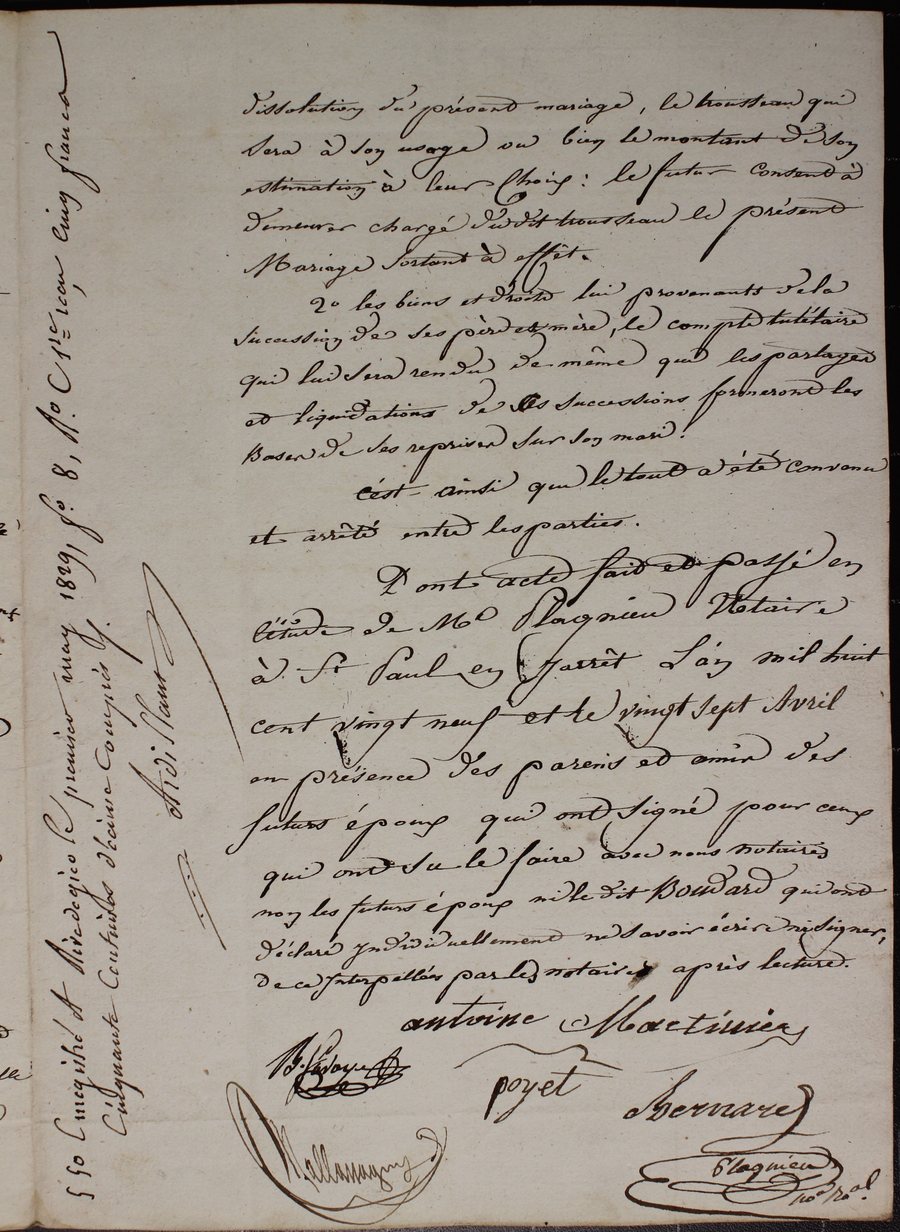 dissolution du présent mariage, le trousseau qui
sera à son usage ou bien le montant de son
estimation à leur choix: le futur consent à
demeurer chargé dudit trousseau le présent
Mariage sortant à effêt.
2o les biens et droits lui provenants de la
succession de ses père et mère, le compte tutélaire
qui lui sera rendu de même que les partages
et liquidations de ses successions formeront les
Bases de ses reprises sur son mari.
c'ést-ainsi que le tout a été convenu
et arrêté entre les parties.
Dont acte fait et passé en
l'étude de Me Plagnieu Notaire
à St Paul en Jarrêt L'an mil huit
cent vingt neuf et le vingt sept Avril
en présence des parens et amis des
futurs époux qui ont signé pour ceux
qui ont su le faire avec nous notaires
non les futurs époux ni le dit Boudard qui ont
déclaré individuellement ne savoir écrire ni signer,
de ce Interpellés par les notaires après lecture.
antoine Martinier
poyet
Bernard
Plagnieu
nore roal
550 Enregistré à Rivedegier le premier may 1829, fo. 8, Ro. C 1re reçu cinq francs
Cinquante Centimes décime compris